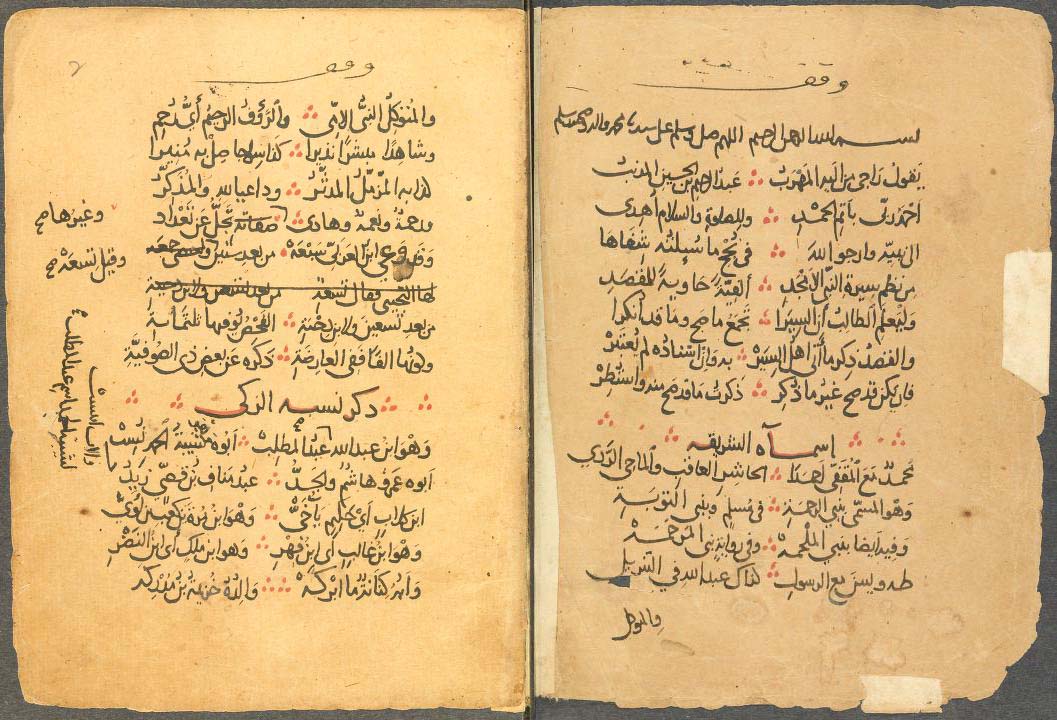 وقف
بسم الله الرحمن الرحيم اللهم صل وسلم على سيدنا محمد واله وصحبه وسلم
يقول راجي من اليه المهرب عبد الرحيم بن الحسين المذنب
احمد ربي باتم الحمد وللصلاة والسلام اهدي
الى نبيه وارجو الله في نجح ما سئلته شفاها
من نظم سيرة النبي الامجد الفية حاوية للمقصد
وليعلم الطالب ان السيرا تجمع ما صح وما قد انكرا
والقصد ذكر ما اتى اهل السير به وان اسناده لم يعتبر
فان يكن قد صح غير ما ذكر ذكرت ما قد صح منه واستطر
اسماؤه الشريفة
محمد مع المقفي احمدا الحاشر العاقب والماحي الردي
وهو المسمى بنبي الرحمة في مسلم وبنبي التوبة
وفيه ايضا بنبي الملحمة وفي رواية نبي المرحمة
طه ويسن مع الرسول كذاك عبد الله في التنزيل
والمتوكل
وقف
والمتوكل النبي الامي والرؤف الرحيم أي رحم
وشاهدا مبشرا نذيرا كذا سراجا صل به منيرا
كذا به المزمل المدثر وداعيا لله والمذكر
ورحمة ونعمة وهادي صفاته تجل عن تعداد
وغيرها صح
وقد وعى ابن العربي سبعة من بعد ستين
وقيل تسعة صح
من بعد تسعين ولابن دحية الفحص يوفيها ثلثمائة
وكونها الفا ففي العارضة ذكره عن بعض ذي الصوفية
ذكر نسبه الزكي
وهو ابن عبد الله عبد المطلب ابوه شيبة الحمد نسب
ابوه عمرو هاشم والجد عبد مناف بن قصي زيد
ابن كلاب اي حكيم يا اخي وهو ابن مرة بن كعب بن لؤي
وهو ابن غالب اي ابن فهر وهو ابن ملك اي ابن النضر
وابه كنانة ما ابركه والده خزيمة بن مدركه